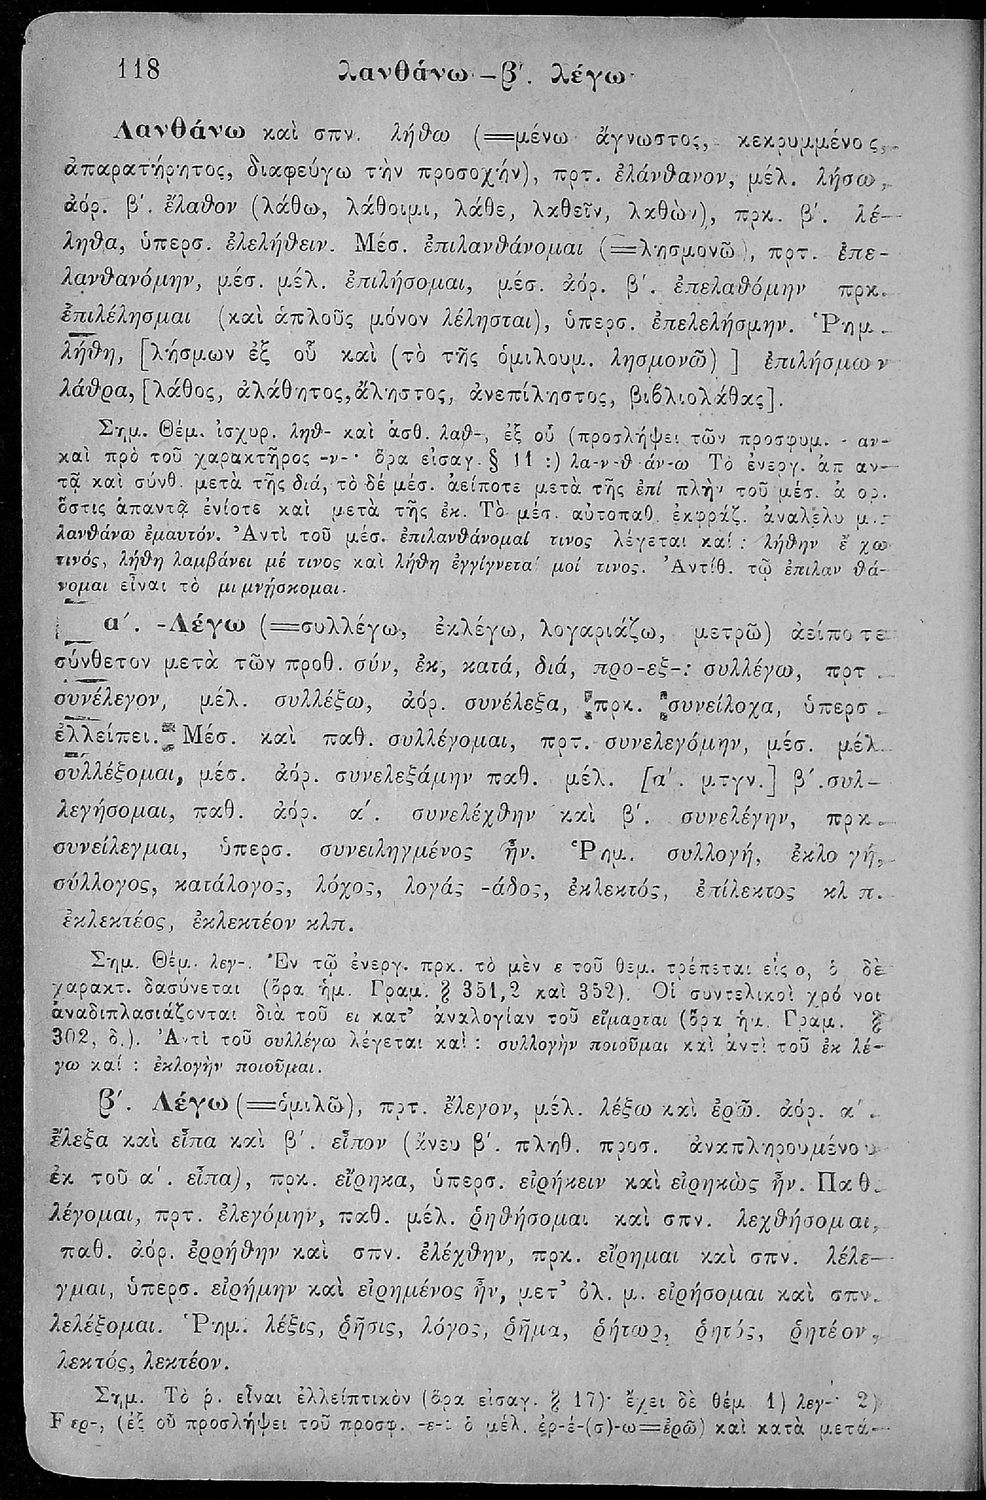 118 λανθάνω – β΄. λέγω
Λανθάνω καὶ σπν. λήθω (=μένω ἄγνωστος, κεκρυμμένος,
ἀπαρατήρητος, διαφεύγω τὴν προσοχήν), πρτ. ἐλάνθανον, μέλ. λήσω,
ἀόρ. β΄. ἔλαθον (λάθω, λάθοιμι, λάθε, λαθεῖν, λαθὼν), πρκ. β΄. λέ-
ληθα, ὑπερσ. ἐλελήθειν. Μέσ. ἐπιλανθάνομαι (=λησμονῶ), πρτ. ἐπε-
λανθανόμην, μέσ. μέλ. ἐπιλήσομαι, μέσ. ἀόρ. β΄. ἐπελαθόμην πρκ.
ἐπιλέλησμαι (καὶ ἁπλοῦς μόνον λέλησται), ὑπερσ. ἐπελελήσμην. Ῥημ.
λήθη, [λήσμων ἐξ οὗ καὶ (τὸ τῆς ὁμιλουμ. λησμονῶ) ] ἐπιλήσμων
λάθρα, [λάθος, ἀλάθητος, ἄληστος, ἀνεπίληστος, βιβλιολάθας].
Σημ. Θέμ. ἰσχυρ. ληθ- καὶ ἀσθ. λαθ-, ἐξ οὗ (προσλήψει τῶν προσφυμ. - αν-
καὶ πρὸ τοῦ χαρακτῆρος -ν-· ὅρα εἰσαγ. § 11 :) λα-ν-θ-άν-ω Τὸ ἐνεργ. ἀπαν-
τᾷ καὶ σύνθ. μετὰ τῆς διά, τὸ δέ μέσ. ἀείποτε μετὰ τῆς ἐπί πλὴν τοῦ μέσ. ἀορ.
ὅστις ἀπαντᾷ ἐνίοτε καὶ μετὰ τῆς ἐκ. Τὸ μέσ. αὐτοπαθ. ἐκφράζ. ἀναλελυμ.:
λανθάνω ἐμαυτόν. Ἀντὶ τοῦ μέσ. ἐπιλανθάνομαί τινος λέγεται καί : λήθην ἔχω
τινός, λήθη λαμβάνει μέ τινος καὶ λήθη ἐγγίγνεταί μοί τινος. Ἀντίθ. τῷ ἐπιλανθά-
νομαι εἶναι τὸ μιμνῄσκομαι.
α΄. -Λέγω (=συλλέγω, ἐκλέγω, λογαριάζω, μετρῶ) ἀείποτε
σύνθετον μετὰ τῶν προθ. σύν, ἐκ, κατά, διά, προ-εξ-: συλλέγω, πρτ.
συνέλεγον, μέλ. συλλέξω, ἀόρ. συνέλεξα, πρκ. συνείλοχα, ὑπερσ.
ἐλλείπει. Μέσ. καὶ παθ. συλλέγομαι, πρτ. συνελεγόμην, μέσ. μέλ.
συλλέξομαι, μέσ. ἀόρ. συνελεξάμην παθ. μέλ. [α΄. μτγν.] β΄. συλ-
λεγήσομαι, παθ. ἀόρ. α΄. συνελέχθην καὶ β΄. συνελέγην, πρκ.
συνείλεγμαι, ὑπερσ. συνειληγμένος ἦν. Ῥημ. συλλογή, ἐκλογή,
σύλλογος, κατάλογος, λόχος, λογάς -άδος, ἐκλεκτός, ἐπίλεκτος κλπ.
ἐκλεκτέος, ἐκλεκτέον κλπ.
Σημ. Θέμ. λεγ-. Ἐν τῷ ἐνεργ. πρκ. τὸ μὲν ε τοῦ θεμ. τρέπεται εἰς ο, ὁ δὲ
χαρακτ. δασύνεται (ὅρα ἡμ. Γραμ. § 351,2 καὶ 352). Οἱ συντελικοὶ χρόνοι
ἀναδιπλασιάζονται διὰ τοῦ ει κατ᾽ ἀναλογίαν τοῦ εἵμαρται (ὅρα ἡμ. Γραμ. §
302, δ.). Ἀντὶ τοῦ συλλέγω λέγεται καὶ : συλλογὴν ποιοῦμαι καὶ ἀντὶ τοῦ ἐκ λέ-
γω καί : ἐκλογὴν ποιοῦμαι.
β΄. Λέγω (=ὁμιλῶ), πρτ. ἔλεγον, μέλ. λέξω καὶ ἐρῶ. ἀόρ. α΄.
ἔλεξα καὶ εἶπα καὶ β΄. εἶπον (ἄνευ β΄. πληθ. προσ. ἀναπληρουμένου
ἐκ τοῦ α΄. εἶπα), πρκ. εἴρηκα, ὑπερσ. εἰρήκειν καὶ εἰρηκὼς ἦν. Παθ.
λέγομαι, πρτ. ἐλεγόμην, παθ. μέλ. ῥηθήσομαι καὶ σπν. λεχθήσομαι,
παθ. ἀόρ. ἐρρήθην καὶ σπν. ἐλέχθην, πρκ. εἴρημαι καὶ σπν. λέλε-
γμαι, ὑπερσ. εἰρήμην καὶ εἰρημένος ἦν, μετ᾽ ὀλ. μ. εἰρήσομαι καὶ σπν.
λελέξομαι. Ῥημ. λέξις, ῥῆσις, λόγος, ῥῆμα, ῥήτωρ, ῥητός, ῥητέον,
λεκτός, λεκτέον.
Σημ. Τὸ ῥ. εἶναι ἐλλείπτικὸν (ὅρα εἰσαγ. § 17)· ἔχει δὲ θέμ 1) λεγ-· 2)
Fερ-, (ἐξ οὗ προσλήψει τοῦ προσφ. -ε-: ὁ μέλ. ἐρ-έ-(σ)-ω=ἐρῶ) καὶ κατὰ μετά-